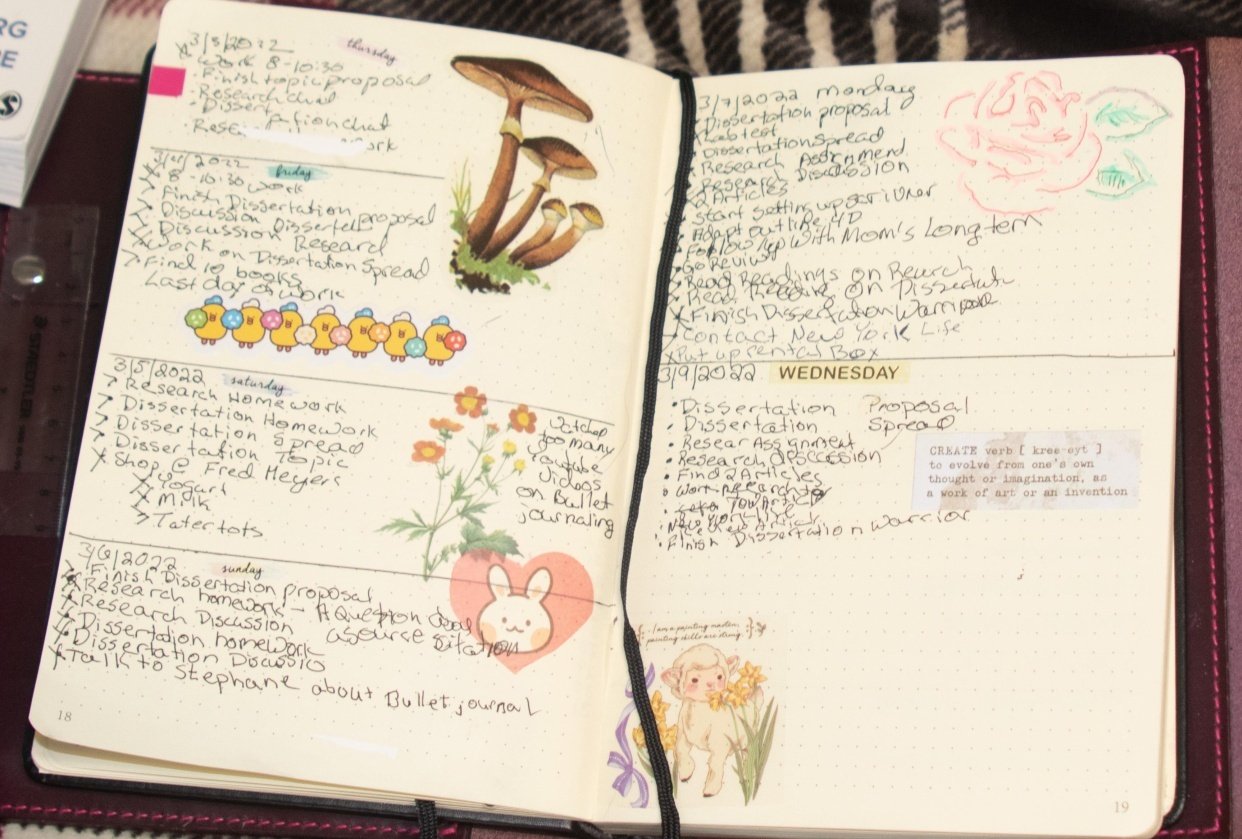 RG
E
STAEDTLER
3/3/2022 thursday
Work 8-10:30
Finish topic proposal
Research chat
Dissertation chat
3/4/2022 friday
8-10:30 work
Finish Dissertation proposal
Discussion
Discussion Research
Work on Dissertation Spread
Find 10 books
Last day of work
3/5/2022 saturday
Research Homework
Dissertation Homework
Dissertation Spread
Dissertation Topic
Shop @ Fred Meyers
Yogurt
Milk
Tatertots
Watched
too many
Youtube
Videos
on Bullet
journaling
3/6/2022 sunday
Finish Dissertation proposal
Research homework - A Question
Research Discussion
Dissertation homework
Dissertation Discussio
Talk to Stephane about Bullet journal
18
3/7/2022 monday
Dissertation proposal
Lab test
Dissertation Spread
Research Assignment
Research Discussion
2 Articles
start setting up
Adapt outline
Follow up with Mom's Long term
Go Review
Read Readings on
Read on
Finish Dissertation
Contact New York Life
Put up rental Box
3/9/2022 WEDNESDAY
Dissertation Proposal
Dissertation Spread
Resear Assignment
Research
Find 2 Articles
New York Life
Finish Dissertation Warrior
CREATE verb [ kree-eyt ]
to evolve from one's own
thought or imagination, as
a work of art or an invention
I am a painting master,
painting skills are strong.
19